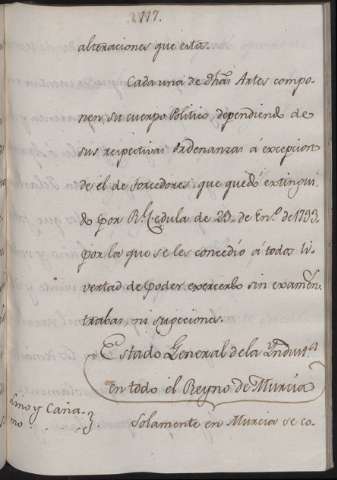 117.
alteraciones que esta.
Cada una de dhas Artes compo-
nen su cuerpo Politico dependiendo de
sus respectivas ordenanzas a excepcion
de él de torcedores que quedó extingui-
do por Rl. Cedula de 29. de En.o de 1793.
por la que se les concedió á todos li-
vertad de poder exercerlo sin examen
trabas, ni sugeciones.
Estado General de la Yndus.a
en todo el Reyno de Murcia
Lino y Caña-
mo
Solamente en Murcia se co-